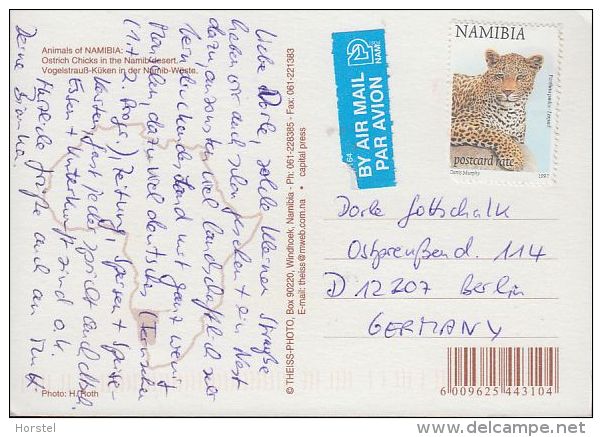 Animals of NAMIBIA:
Ostrich Chicks in the Namib desert.
Vogelstrauß-Küken in der Namib-Wüste.
Liebe Dorle, solche kleinen Strauße
haben wir auch schon gesehen + ein Nest
dazu, ansonsten viel Landschaft
Land mit ganz wenig
Menschen, dazu viel deutsches (Fernsehen
(1. + 2. Progr.), Zeitung, Speisen + Speise-
karten, fast jeder spricht auch dt.
Essen + Unterkunft sind o.k.
Herzliche Grüße auch an
Deine
Photo: H. Roth
© THEISS-PHOTO, Box 90220, Windhoek, Namibia - Ph: 061-228385 - Fax: 061-221383
E-mail: theiss@mweb.com.na • capital press
64
BY AIR MAIL
PAR AVION
NAMIBIA
postcard rate
1997
Dorle Gottschalk
Ostpreußend. 114
D 12207 Berlin
GERMANY
6 009625 443104
delcampe.net